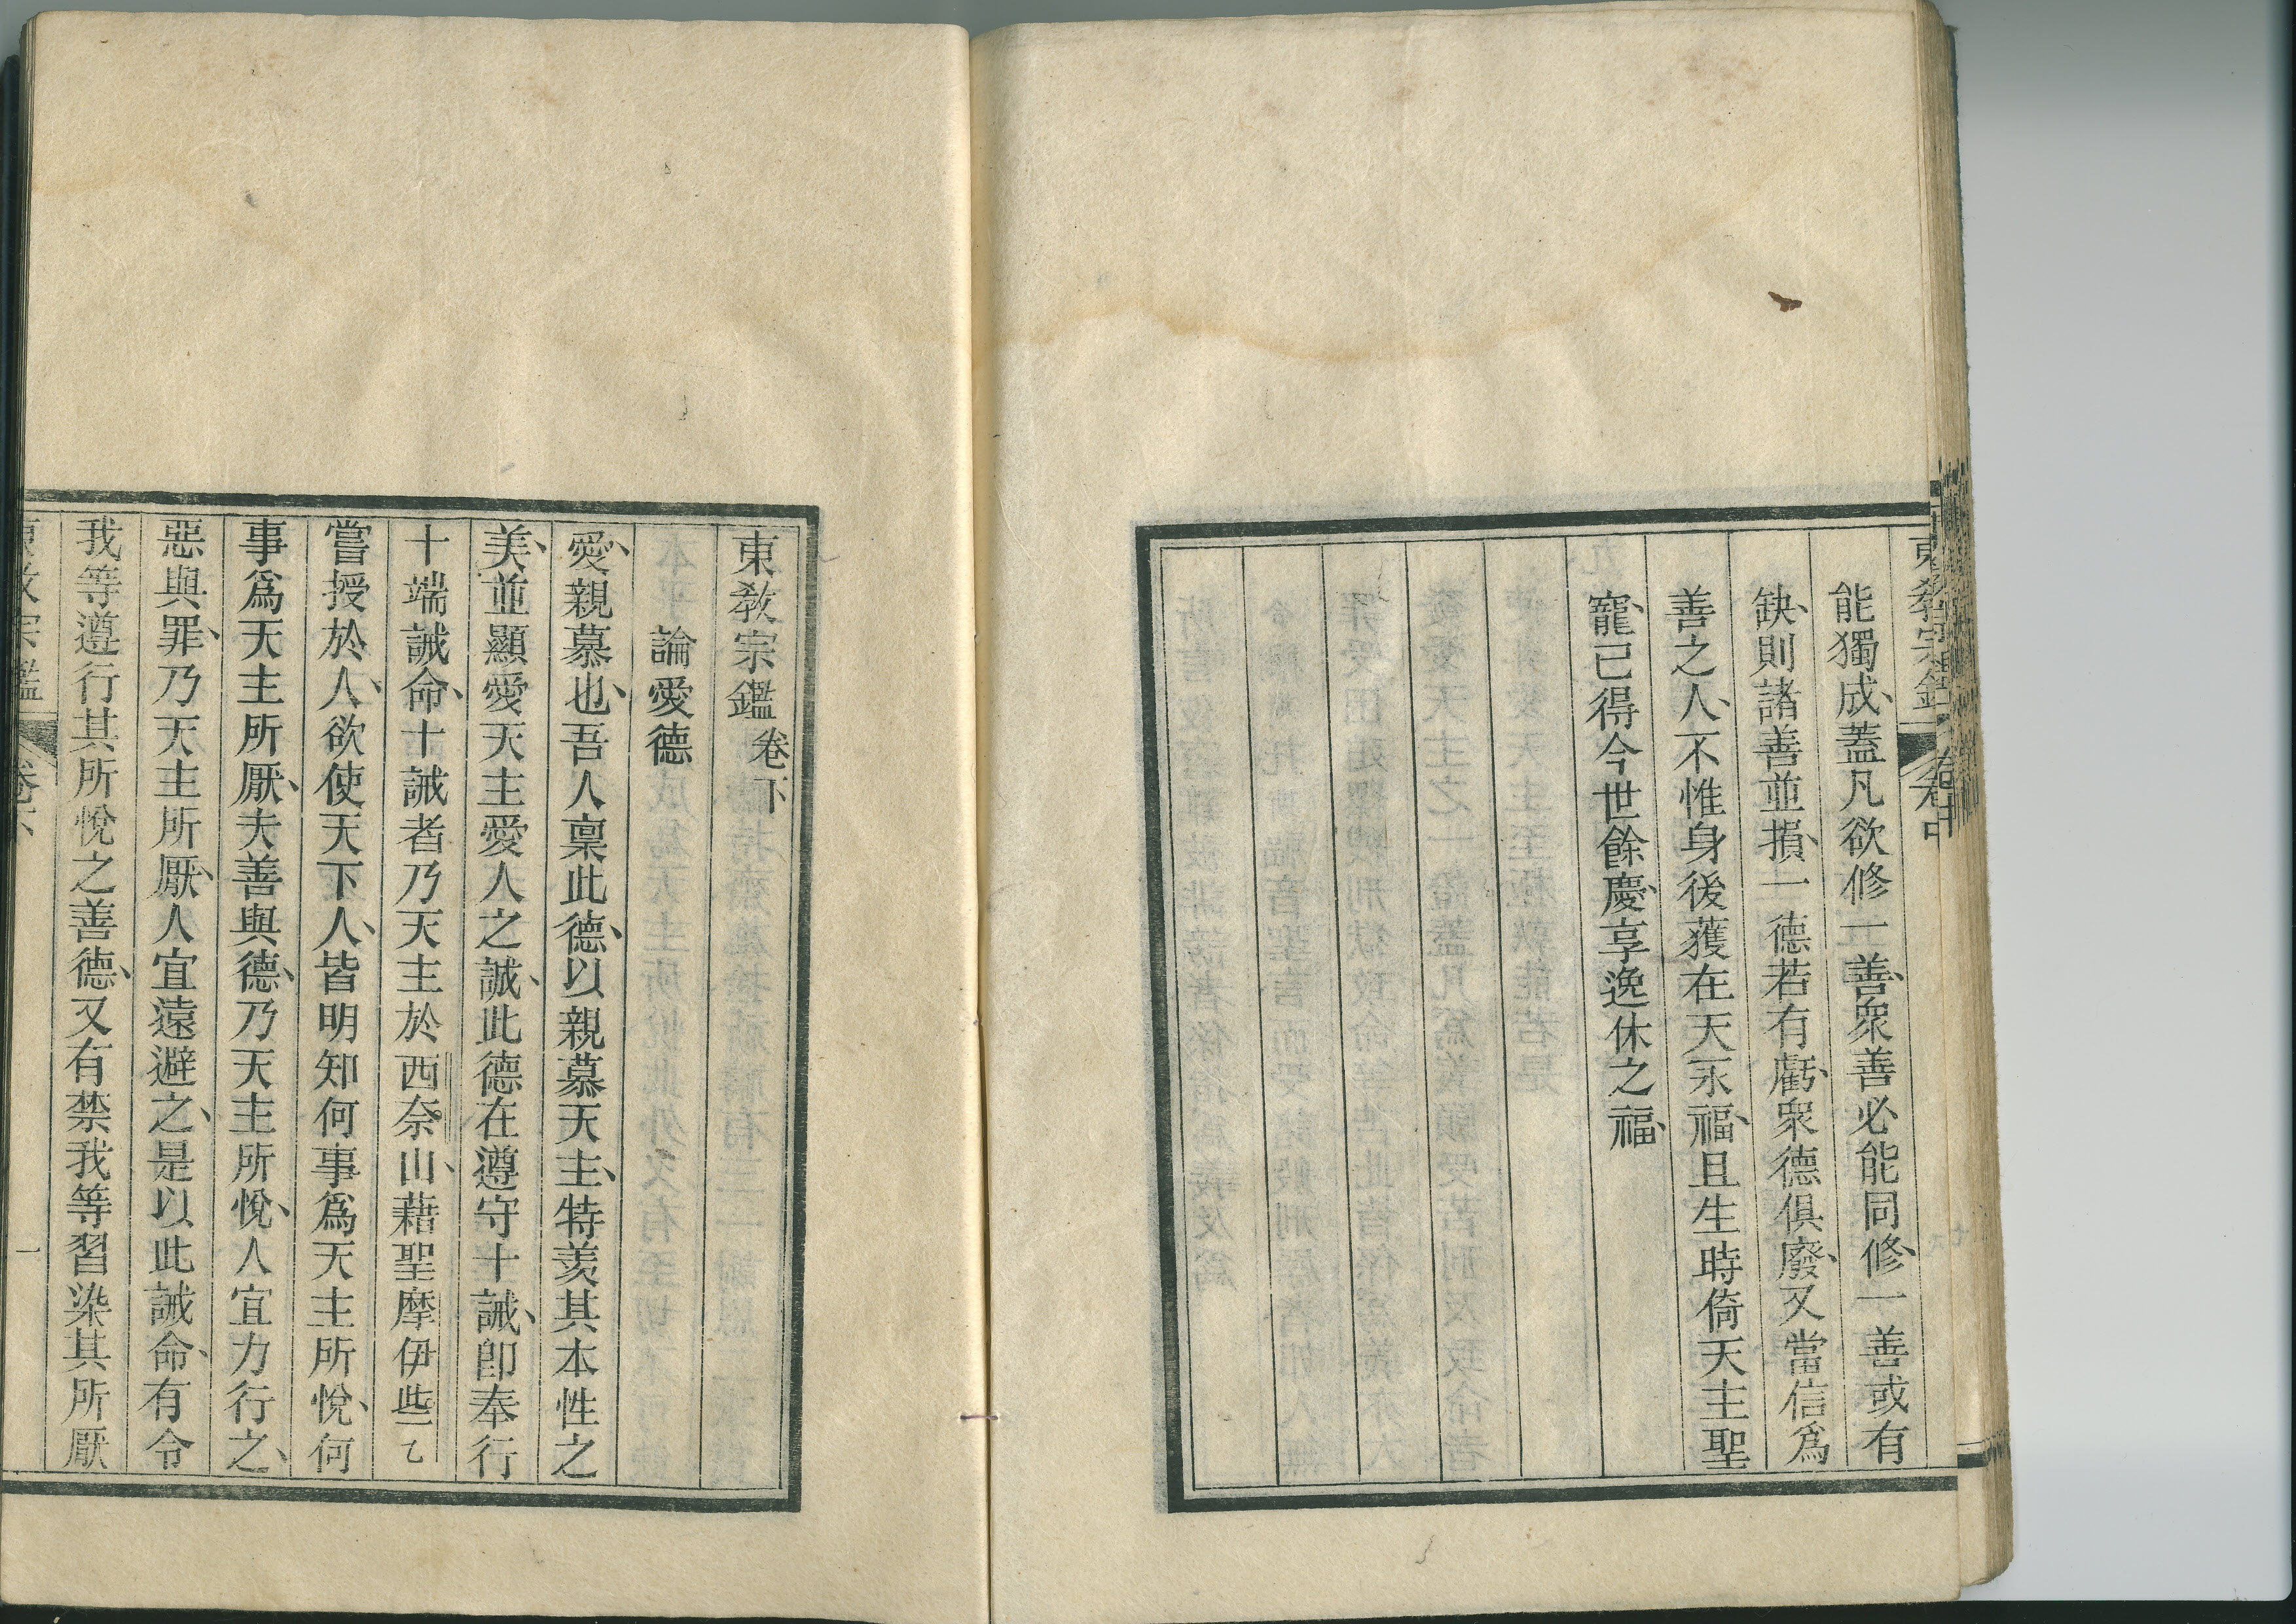 東教宗鑑
卷中
能獨成、蓋凡欲修一善、衆善必能同修、一善或有
缺、則諸善並損、一德若有虧、衆德俱廢、又當信爲
善之人、不惟身後獲在天永福、且生時倚天主聖
寵、已得今世餘慶、享逸休之福、
東敎宗鑑 卷下
論愛德
愛、親慕也、吾人稟此德、以親慕天主、特羨其本性之
美、並顯愛天主愛人之誠、此德在遵守十誡、卽奉行
十端誡命、十誡者乃天主於西奈山、藉聖摩伊些乙
嘗授於人、欲使天下人、皆明知何事爲天主所悅、何
事爲天主所厭、夫善與德、乃天主所悅、人宜力行之、
惡與罪、乃天主所厭、人宜遠避之、是以此誡命、有令
我等遵行其所悅之善德、又有禁我等習染其所厭
東敎宗鑑
卷下
一